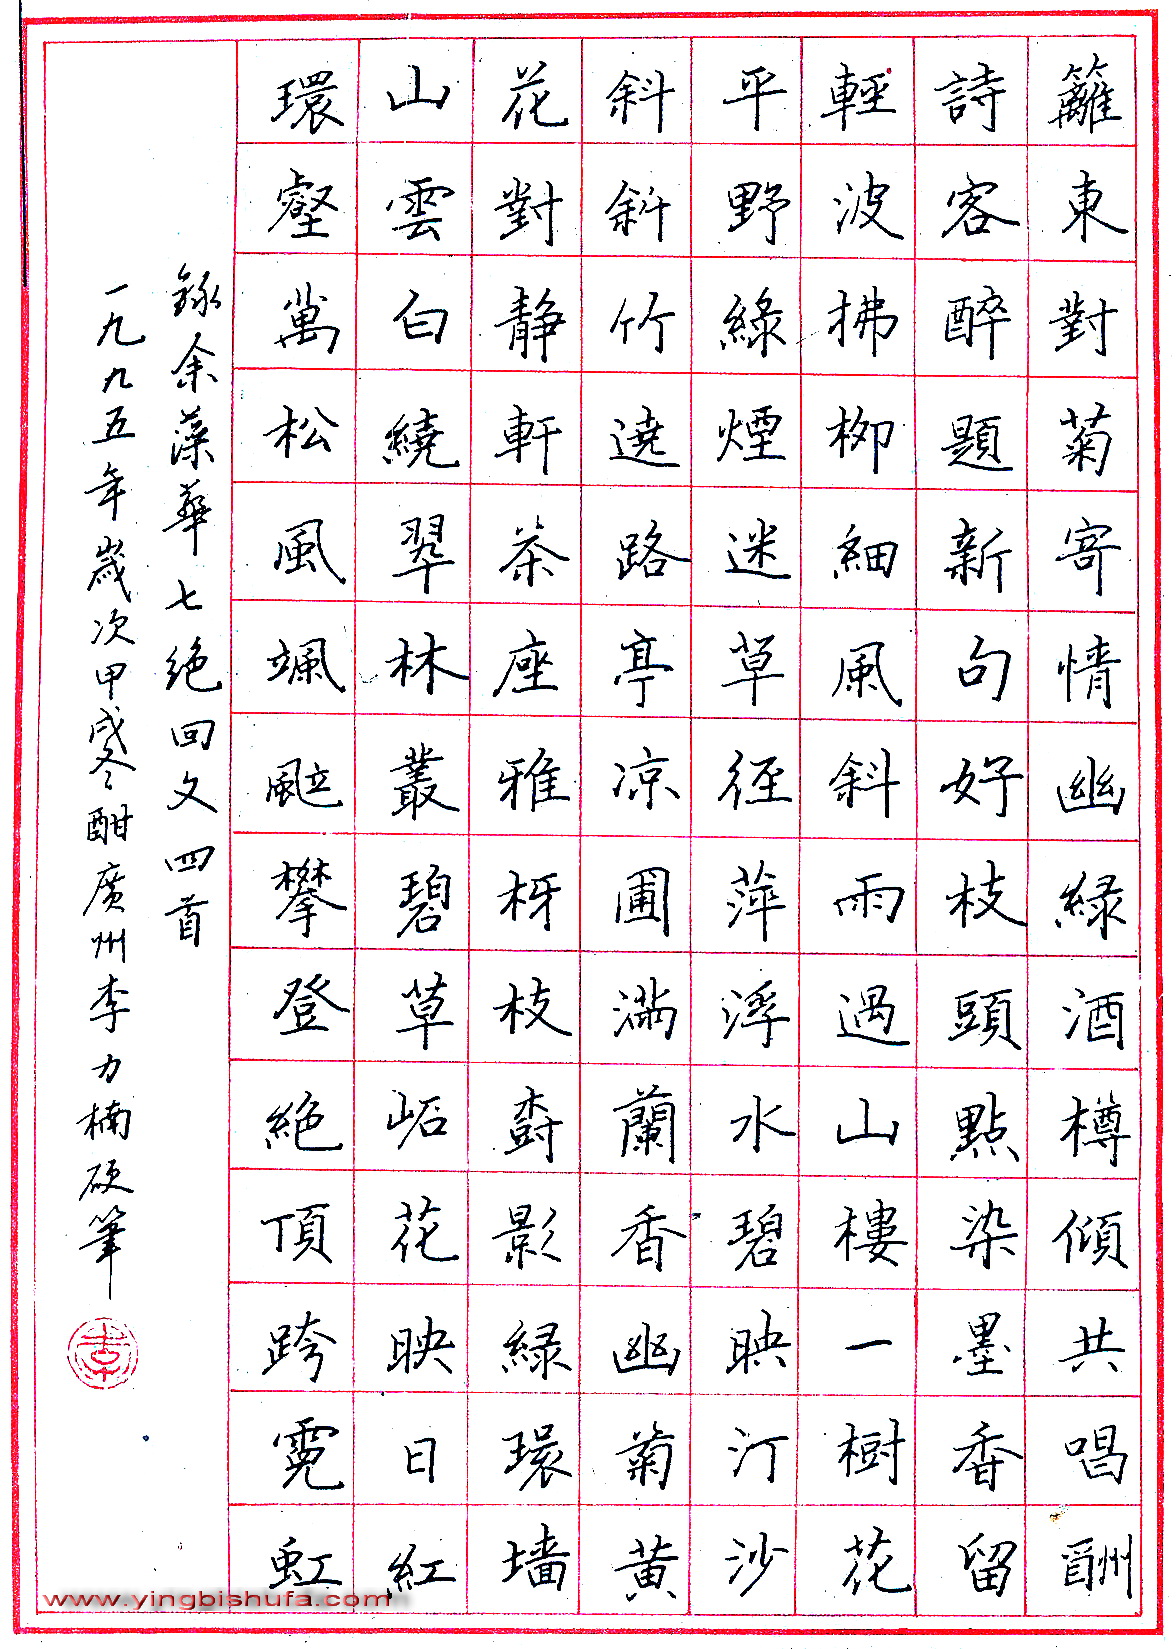 籬東對菊寄情幽緑酒樽傾共唱酬
詩客醉題新句好枝頭點染墨香留
輕波拂柳細風斜雨過山樓一樹花
平野綠煙迷草徑萍浮水碧映汀沙
斜斜竹遶路亭凉圃滿蘭香幽菊黄
花對静軒茶座雅枒枝𣗳影緑環墙
山雲白繞翠林叢碧草岩花映日紅
環壑萬松風颯颭攀登絶頂跨霓虹
錄余藻華七绝回文四首
一九九五年歲次甲戌冬酣廣州李力楠硬筆
www.yingbishufa.com